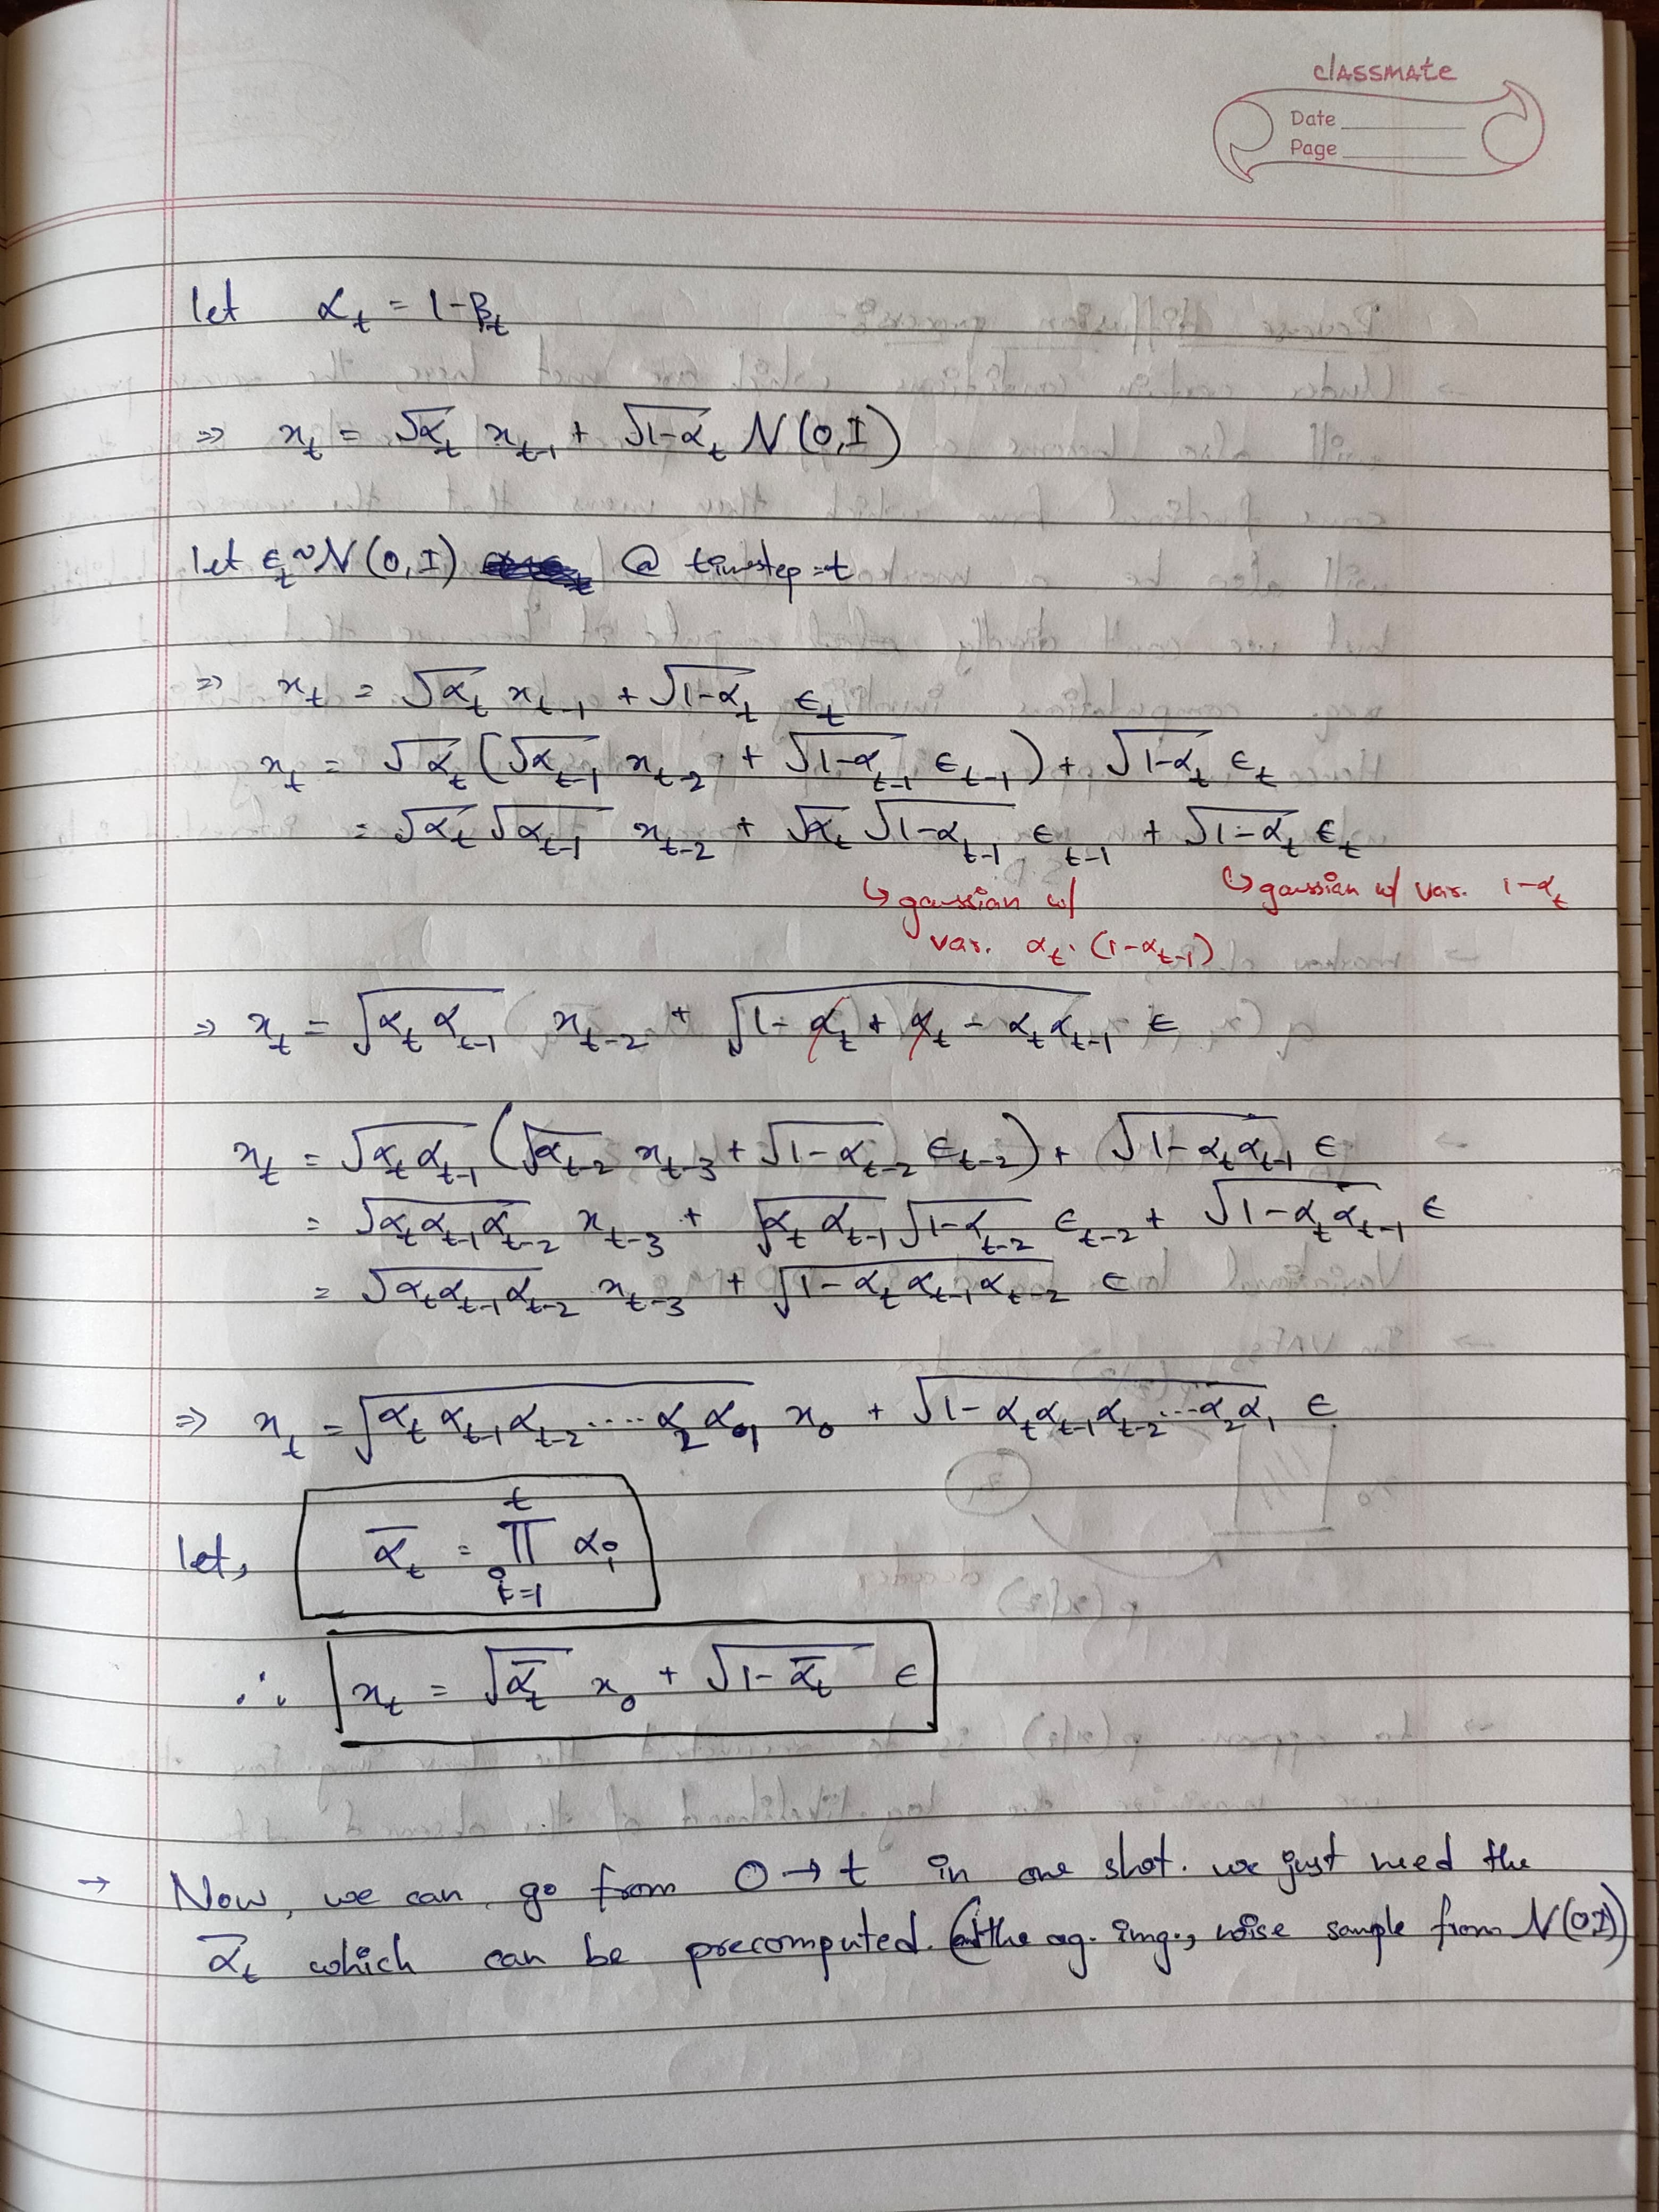 classmate
Date
Page
let αₜ = 1-βₜ
⇒ xₜ = √αₜ xₜ₋₁ + √(1-αₜ) N(0,I)
let εₜ ~ N(0,I) @ timestep=t
⇒ xₜ = √αₜ xₜ₋₁ + √(1-αₜ) εₜ
xₜ = √αₜ (√αₜ₋₁ xₜ₋₂ + √(1-αₜ₋₁) εₜ₋₁) + √(1-αₜ) εₜ
= √αₜ √αₜ₋₁ xₜ₋₂ + √αₜ √(1-αₜ₋₁) εₜ₋₁ + √(1-αₜ) εₜ
↳ gaussian w/ ↳ gaussian w/ var. 1-αₜ
var. αₜ·(1-αₜ₋₁)
⇒ xₜ = √(αₜ αₜ₋₁) xₜ₋₂ + √(1-αₜ+αₜ-αₜαₜ₋₁) ε
xₜ = √(αₜαₜ₋₁) (√αₜ₋₂ xₜ₋₃ + √(1-αₜ₋₂) εₜ₋₂) + √(1-αₜαₜ₋₁) ε
= √(αₜαₜ₋₁αₜ₋₂) xₜ₋₃ + √(αₜαₜ₋₁) √(1-αₜ₋₂) εₜ₋₂ + √(1-αₜαₜ₋₁) ε
= √(αₜαₜ₋₁αₜ₋₂) xₜ₋₃ + √(1-αₜαₜ₋₁αₜ₋₂) ε
⇒ xₜ = √(αₜαₜ₋₁αₜ₋₂.....α₂α₁) x₀ + √(1-αₜαₜ₋₁αₜ₋₂...α₂α₁) ε
let, ᾱₜ = ∏ᵢ₌₁ᵗ αᵢ
∴ xₜ = √ᾱₜ x₀ + √(1-ᾱₜ) ε
→ Now, we can go from 0→t in one shot. we just need the
ᾱₜ which can be precomputed. (the og. img., noise sample from N(0I))